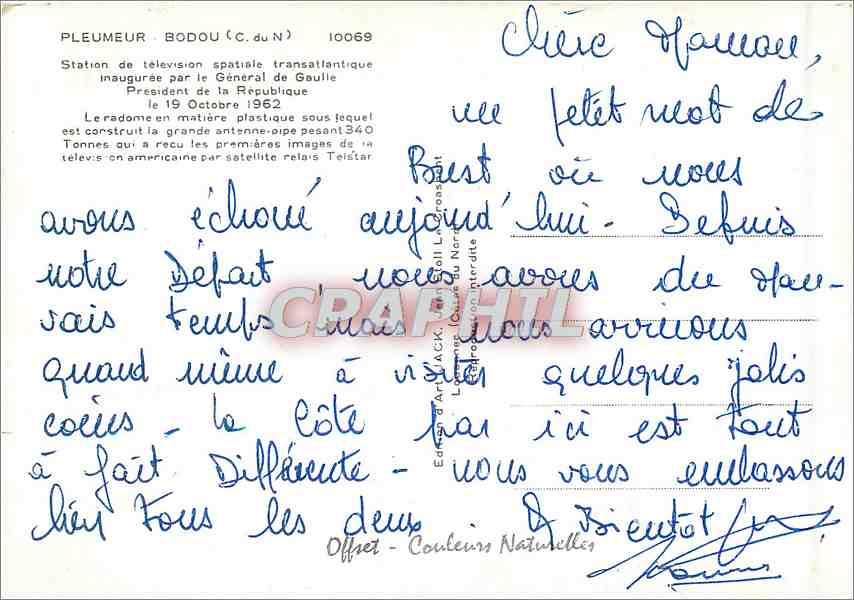 PLEUMEUR - BODOU (C. du N) 10069
Station de télévision spatiale transatlantique
inaugurée par le Général de Gaulle
President de la République
le 19 Octobre 1962
Le radome en matière plastique sous lequel
est construit la grande antenne-pipe pesant 340
Tonnes qui a recu les premières images de la
télévision americaine par satellite relais Telstar
Chère Maman,
un petit mot de
Brest où nous
avons échoué aujourd'hui - Depuis
notre Départ nous avons du mau-
vais temps mais nous arrivons
quand même à visiter quelques jolis
coins - la Côte par ici est tout
à fait Différente - nous vous embassons
bien tous les deux. A Bientôt
Edition d'Art JACK, Jean Stoll
Louannec (Cotes du Nord)
Reproduction interdite
Offset - Couleurs Naturelles
CRAPHIL